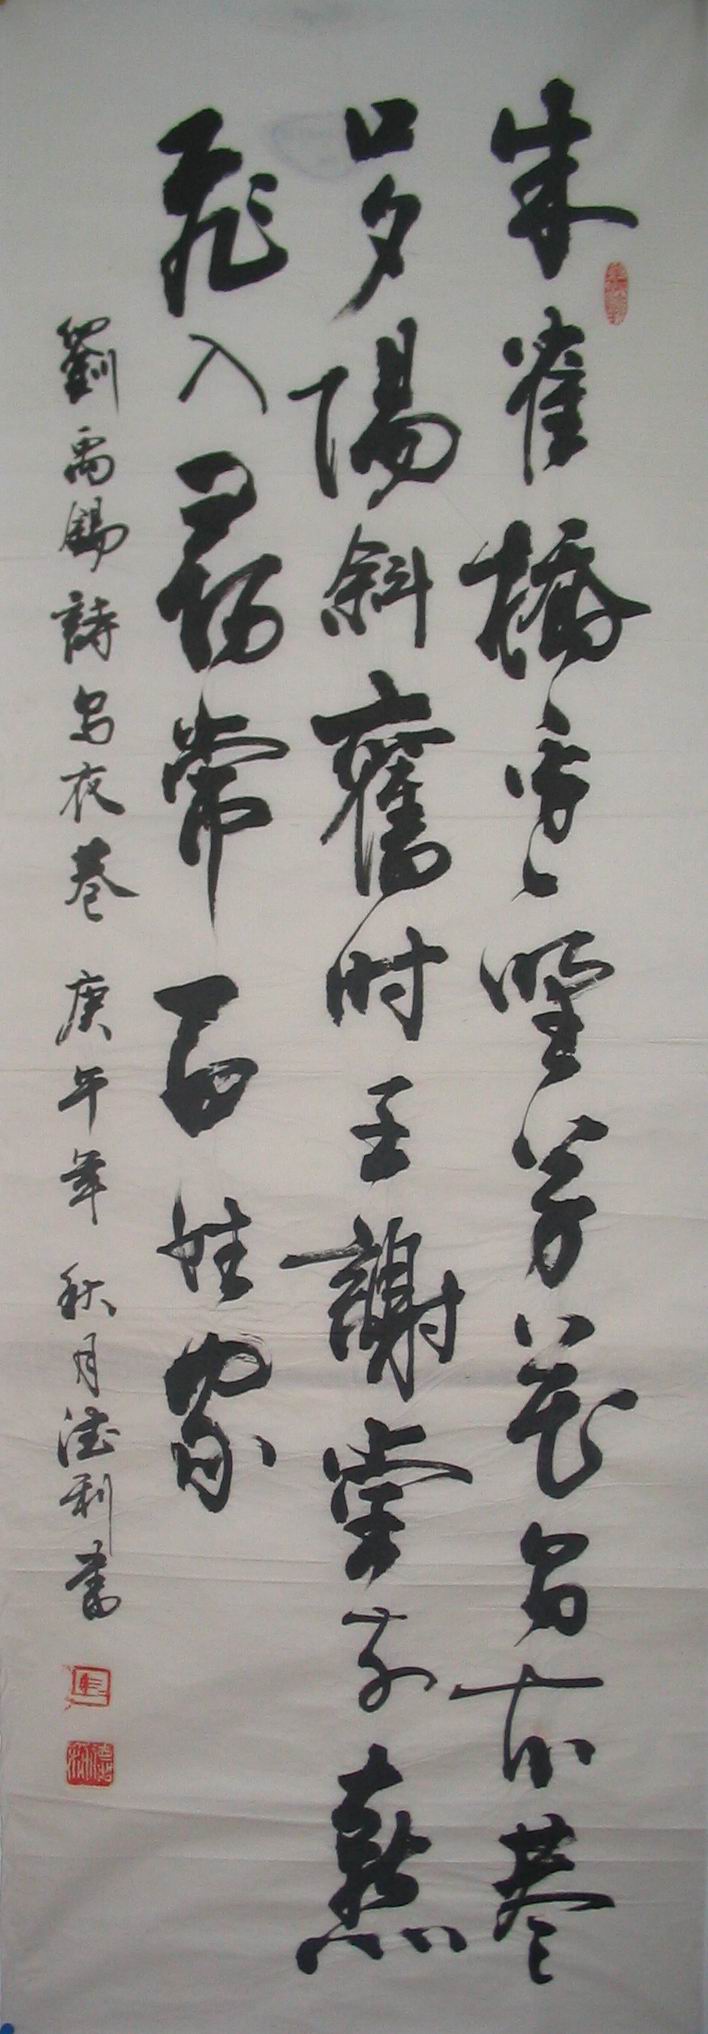 朱雀橋邊野草花烏衣巷
口夕陽斜舊时王謝堂前燕
飛入尋常百姓家
劉禹錫詩烏夜巷 庚午年 秋月德利書